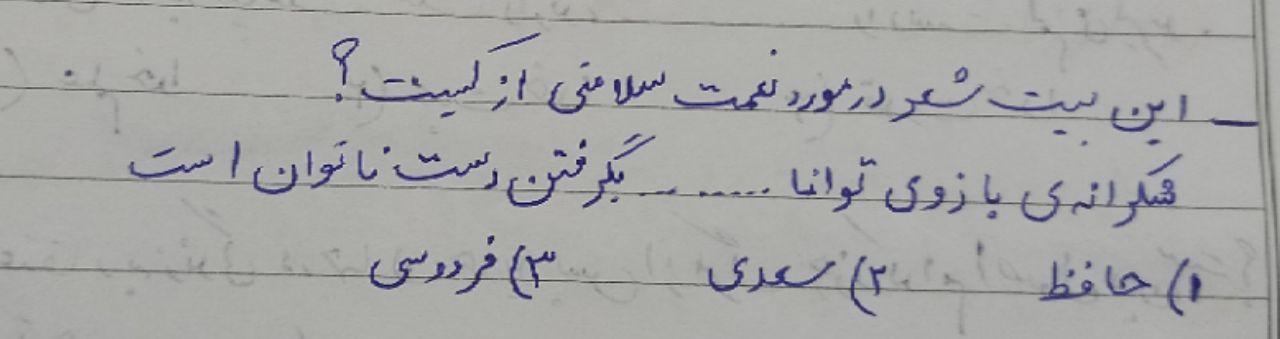 _ این بیت شعر در مورد نعمت سلامتی از کیست؟
شکرانه‌ی بازوی توانا ........ بگرفتن دست ناتوان است
۱) حافظ ۲) سعدی ۳) فردوسی